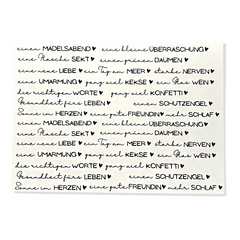 einen MÄDELSABEND♥ eine kleine ÜBERRASCHUNG♥
eine Flasche SEKT♥ einen grünen DAUMEN♥
eine neue LIEBE♥ ein Tag am MEER♥ starke NERVEN♥
eine UMARMUNG♥ ganz viel KEKSE♥ ein Glas WEIN♥
die richtigen WORTE♥ ganz viel KONFETTI♥
Gesundheit fürs LEBEN♥ einen SCHUTZENGEL♥
Sonne im HERZEN♥ eine gute FREUNDIN♥ mehr SCHLAF♥
einen MÄDELSABEND♥ eine kleine ÜBERRASCHUNG♥
eine Flasche SEKT♥ einen grünen DAUMEN♥
eine neue LIEBE♥ ein Tag am MEER♥ starke NERVEN♥
eine UMARMUNG♥ ganz viel KEKSE♥ ein Glas WEIN♥
die richtigen WORTE♥ ganz viel KONFETTI♥
Gesundheit fürs LEBEN♥ einen SCHUTZENGEL♥
Sonne im HERZEN♥ eine gute FREUNDIN♥ mehr SCHLAF♥